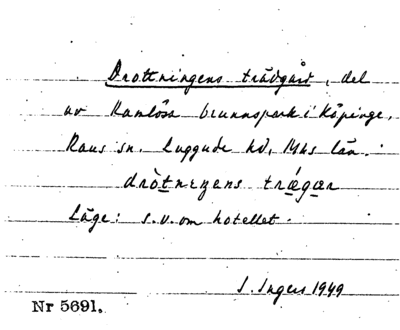 Drottningens trädgård, del
av Ramlösa brunnspark i Köpinge,
Raus sn. Luggude hd, Mhs län.
dròtneŋens trǽgær
Läge: s.v. om hotellet.
I. Ingers 1949
Nr 5691.